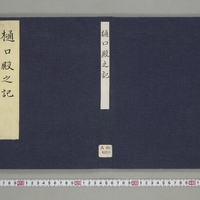 樋口殿之記
樋口殿之記